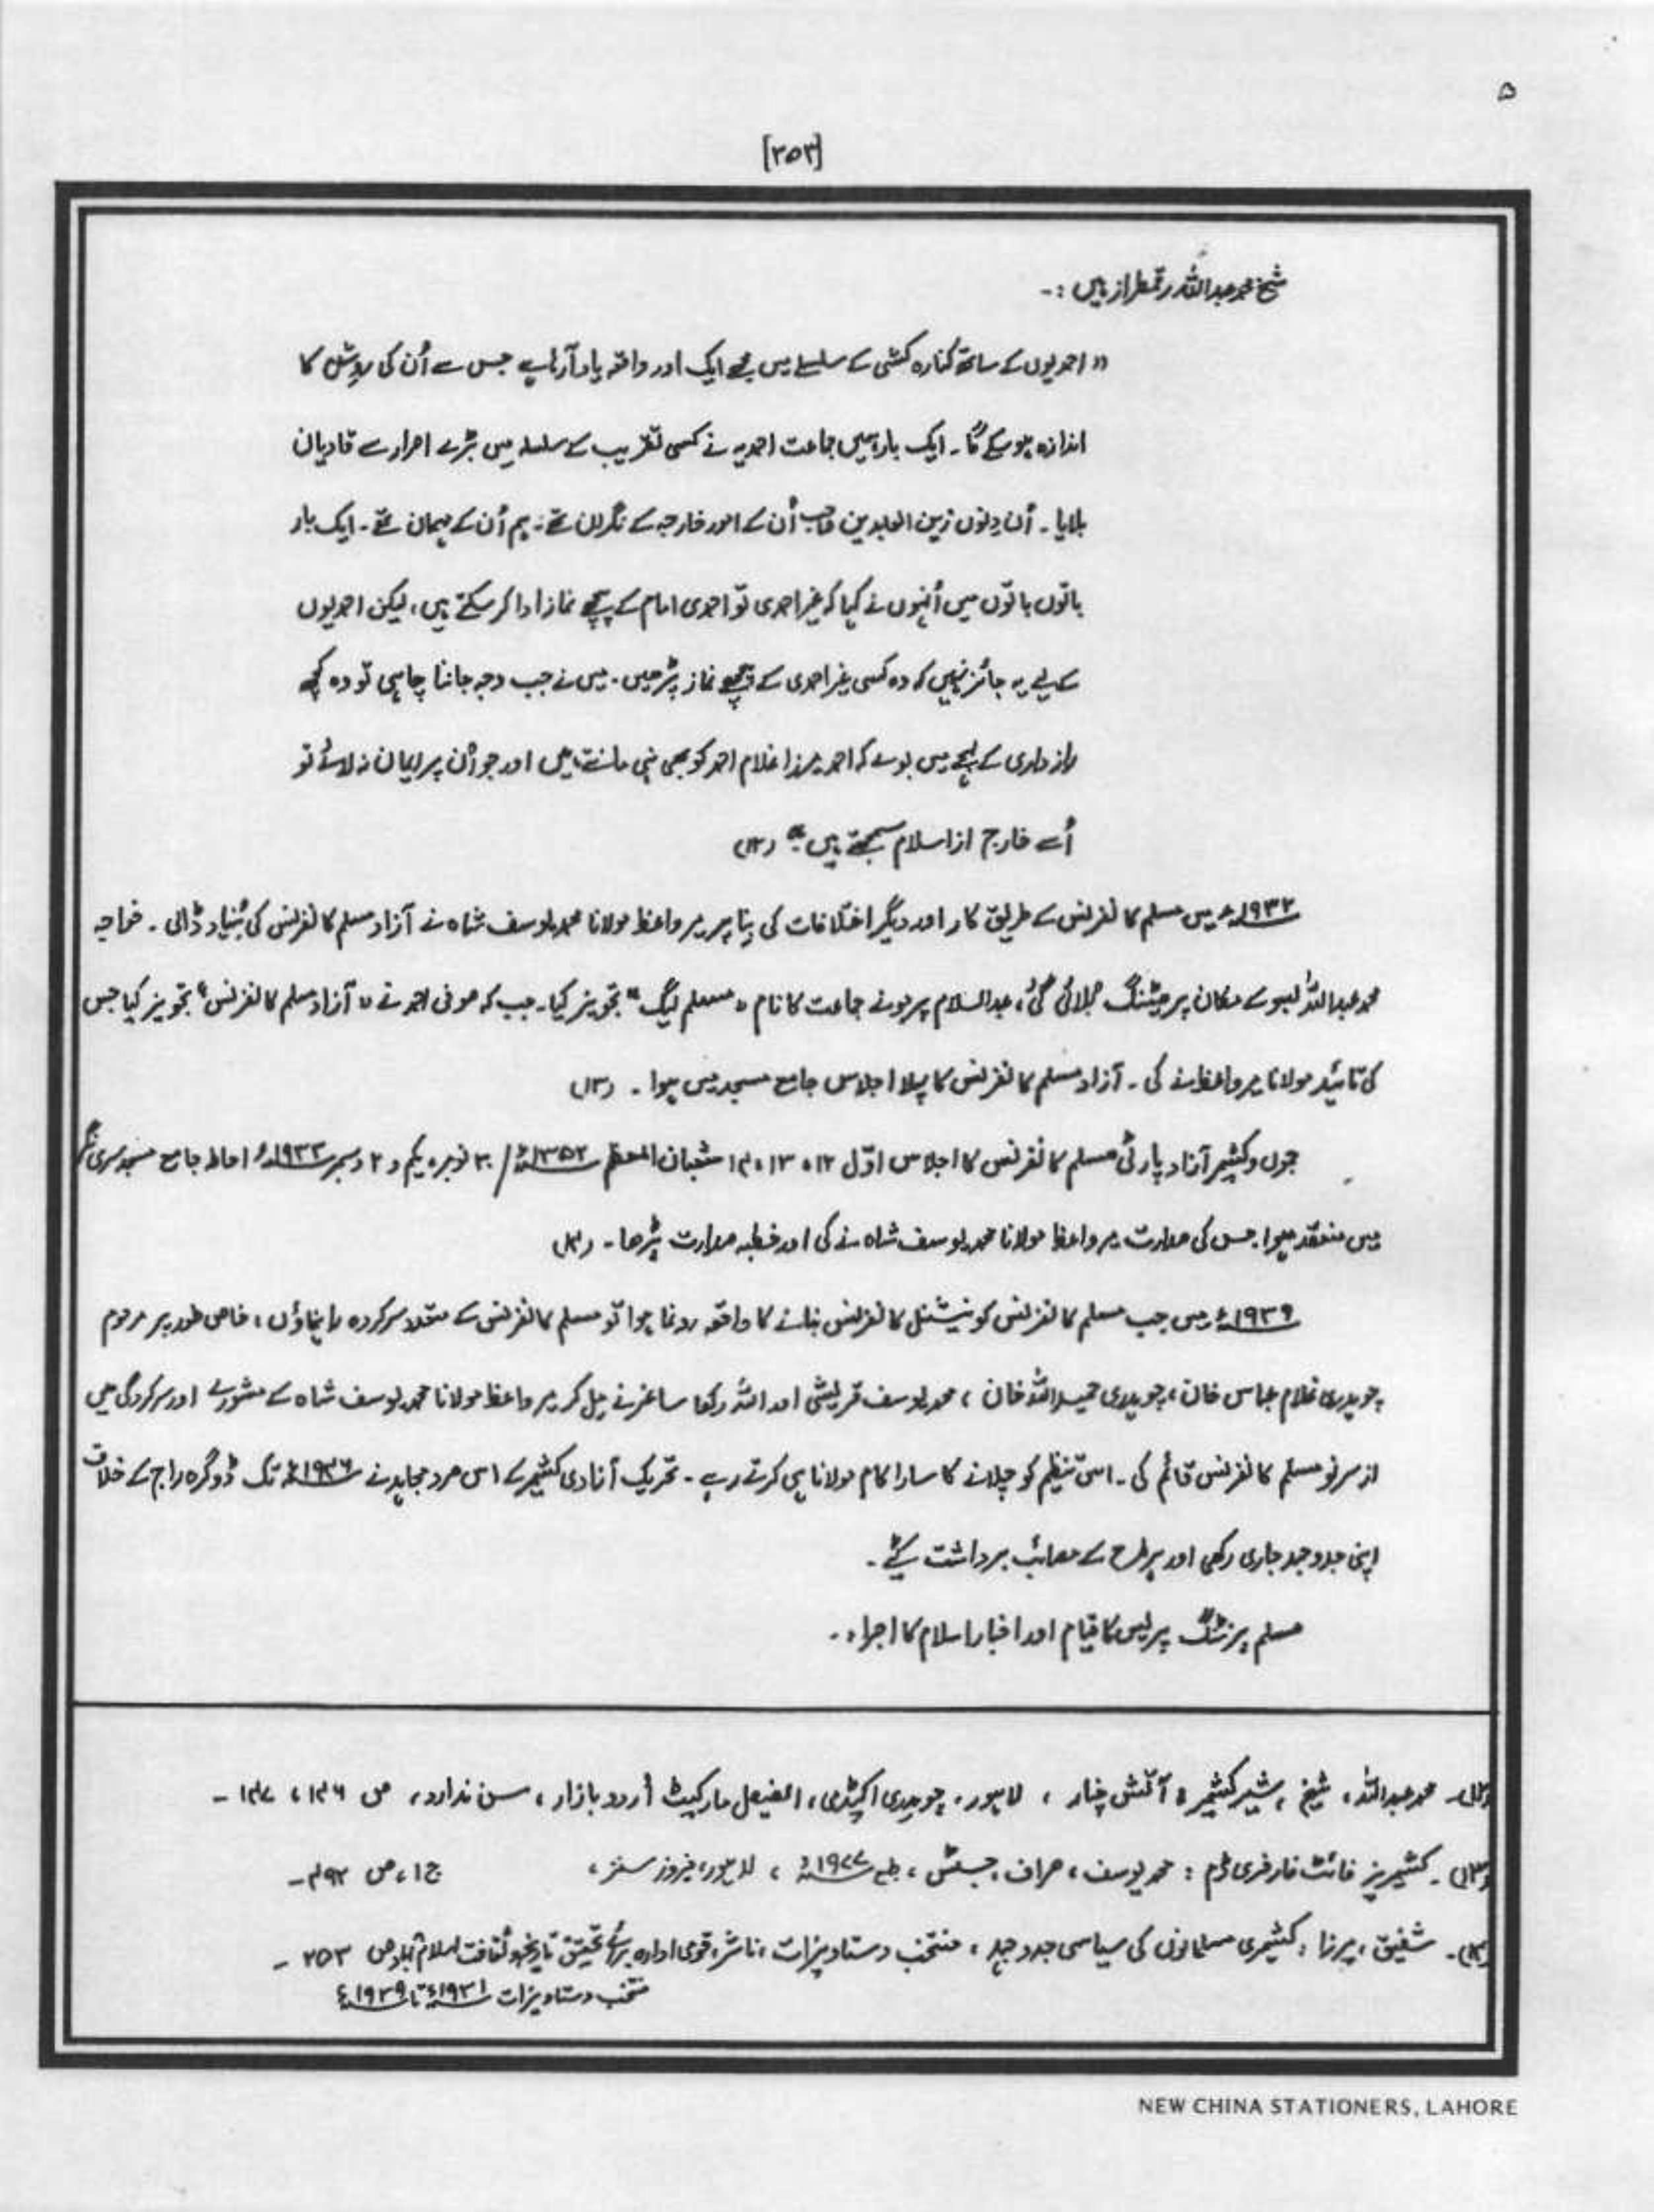 ۵
[۲۵۳]
شیخ محمد عبداللہ رقمطراز ہیں :-
" احمدیوں کے ساتھ کنارہ کشی کے سلسلے میں مجھے ایک اور واقعہ یاد آرہا ہے جس سے اُن کی روش کا
اندازہ ہو سکے گا ۔ ایک بار ہمیں جماعت احمدیہ نے کسی تقریب کے سلسلہ میں بڑے اصرار سے قادیان
بلایا ۔ اُن دنوں زین العابدین صاحب اُن کے امور خارجہ کے نگران تھے ۔ ہم اُن کے مہمان تھے ۔ ایک بار
باتوں باتوں میں اُنہوں نے کہا کہ غیر احمدی تو احمدی امام کے پیچھے نماز ادا کر سکتے ہیں ، لیکن احمدیوں
کے لیے یہ جائز نہیں کہ وہ کسی غیر احمدی کے پیچھے نماز پڑھیں ۔ میں نے جب وجہ جاننا چاہی تو وہ کچھ
راز داری کے لہجے میں بولے کہ احمدی مرزا غلام احمد کو بھی نبی مانتے ہیں اور جو اُن پر ایمان نہ لائے تو
اُسے خارج از اسلام سمجھتے ہیں ۔" (۱۲)
۱۹۳۲ء میں مسلم کانفرنس کے طریق کار اور دیگر اختلافات کی بنا پر میر واعظ مولانا محمد یوسف شاہ نے آزاد مسلم کانفرنس کی بنیاد ڈالی ۔ خواجہ
محمد عبداللہ کے مکان پر میٹنگ بلائی گئی ، عبدالسلام پرد نے جماعت کا نام " مسلم لیگ " تجویز کیا ۔ جب کہ صوفی احمد نے " آزاد مسلم کانفرنس " تجویز کیا جس
کی تائید مولانا میر واعظ نے کی ۔ آزاد مسلم کانفرنس کا پہلا اجلاس جامع مسجد میں ہوا ۔ (۱۳)
جموں و کشمیر آزاد پارٹی مسلم کانفرنس کا اجلاس اوّل ۱۲ ، ۱۳ ، ۱۴ شعبان المعظم ۱۳۵۲ھ / ۳۰ نومبر ، یکم و ۲ دسمبر ۱۹۳۳ء احاطہ جامع مسجد سری نگر
میں منعقد ہوا جس کی صدارت میر واعظ مولانا محمد یوسف شاہ نے کی اور خطبہ صدارت پڑھا ۔ (۱۴)
۱۹۳۹ء میں جب مسلم کانفرنس کو نیشنل کانفرنس بنانے کا واقعہ رونما ہوا تو مسلم کانفرنس کے متعدد سرکردہ راہنماؤں ، خاص طور پر مرحوم
چوہدری غلام عباس خان ، چوہدری حمید اللہ خان ، محمد یوسف قریشی اور اللہ رکھا ساغر نے مل کر میر واعظ مولانا محمد یوسف شاہ کے مشورے اور سرکردگی میں
از سر نو مسلم کانفرنس قائم کی ۔ اس تنظیم کو چلانے کا سارا کام مولانا ہی کرتے رہے ۔ تحریک آزادی کشمیر کے اس مرد مجاہد نے ۱۹۴۶ء تک ڈوگرہ راج کے خلاف
اپنی جدوجہد جاری رکھی اور ہر طرح کے مصائب برداشت کئے ۔
مسلم پرنٹنگ پریس کا قیام اور اخبار اسلام کا اجراء ۔
(۱۲)۔ محمد عبداللہ ، شیخ ، شیر کشمیر ، آتش چنار ، لاہور ، چوہدری اکیڈمی ، الفیصل مارکیٹ اُردو بازار ، سن ندارد ، ص ۱۴۶ ، ۱۴۷ ۔
(۱۳)۔ کشمیریز فائٹ فار فری ڈم : محمد یوسف ، صراف ، جسٹس ، طبع ۱۹۷۷ء ، لاہور ، فیروز سنز ، ج ۱ ، ص ۴۹۲ ۔
(۱۴)۔ شفیق ، مرزا ، کشمیری مسلمانوں کی سیاسی جدوجہد ، منتخب دستاویزات ، ناشر ، قومی ادارہ برائے تحقیق تاریخ و ثقافت اسلام آباد ص ۲۵۳ ۔
منتخب دستاویزات ۱۹۳۱ء تا ۱۹۳۹ء
NEW CHINA STATIONERS, LAHORE